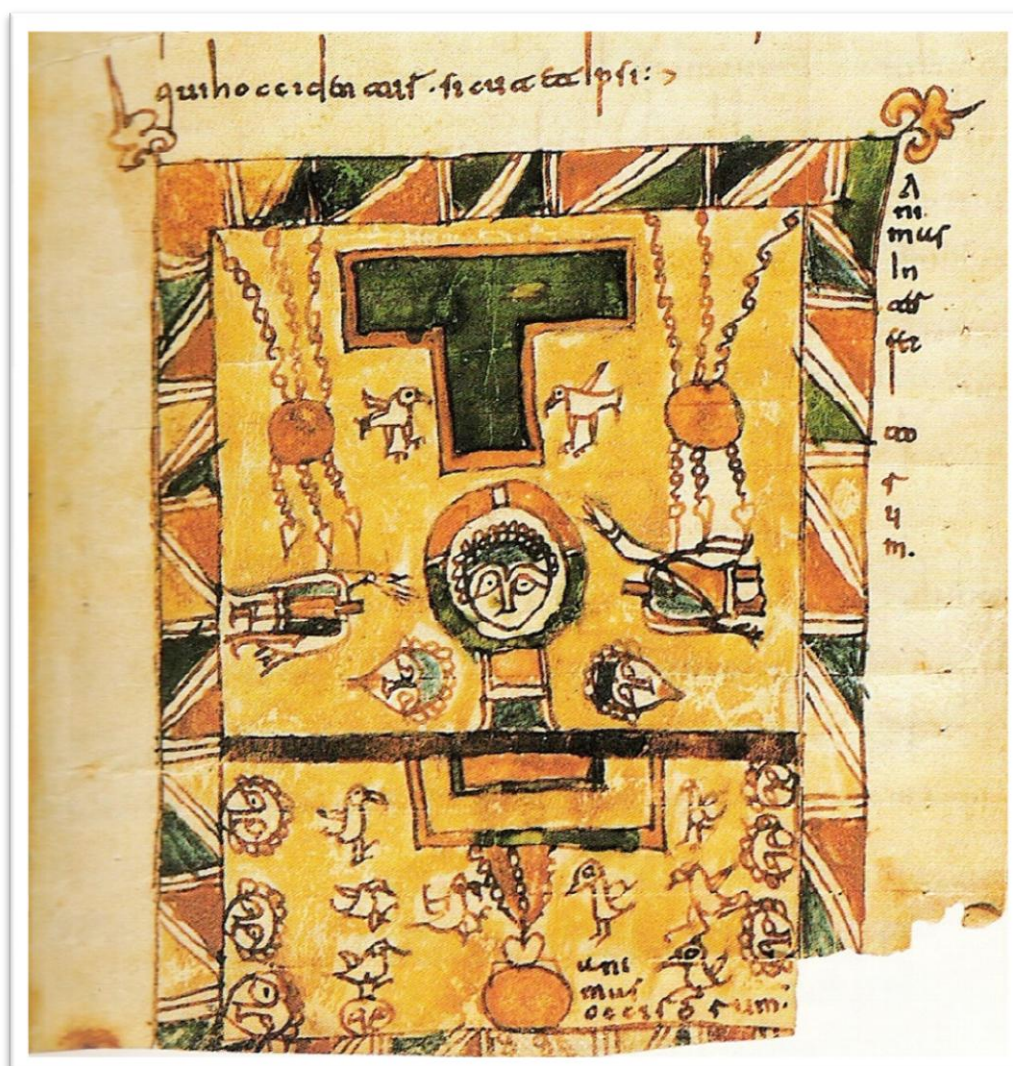 qui hoccidentur. sicut et ipsi:
A
ni
mas
In
ter
fec
to
r
u
m.
ani
mas
occisorum: